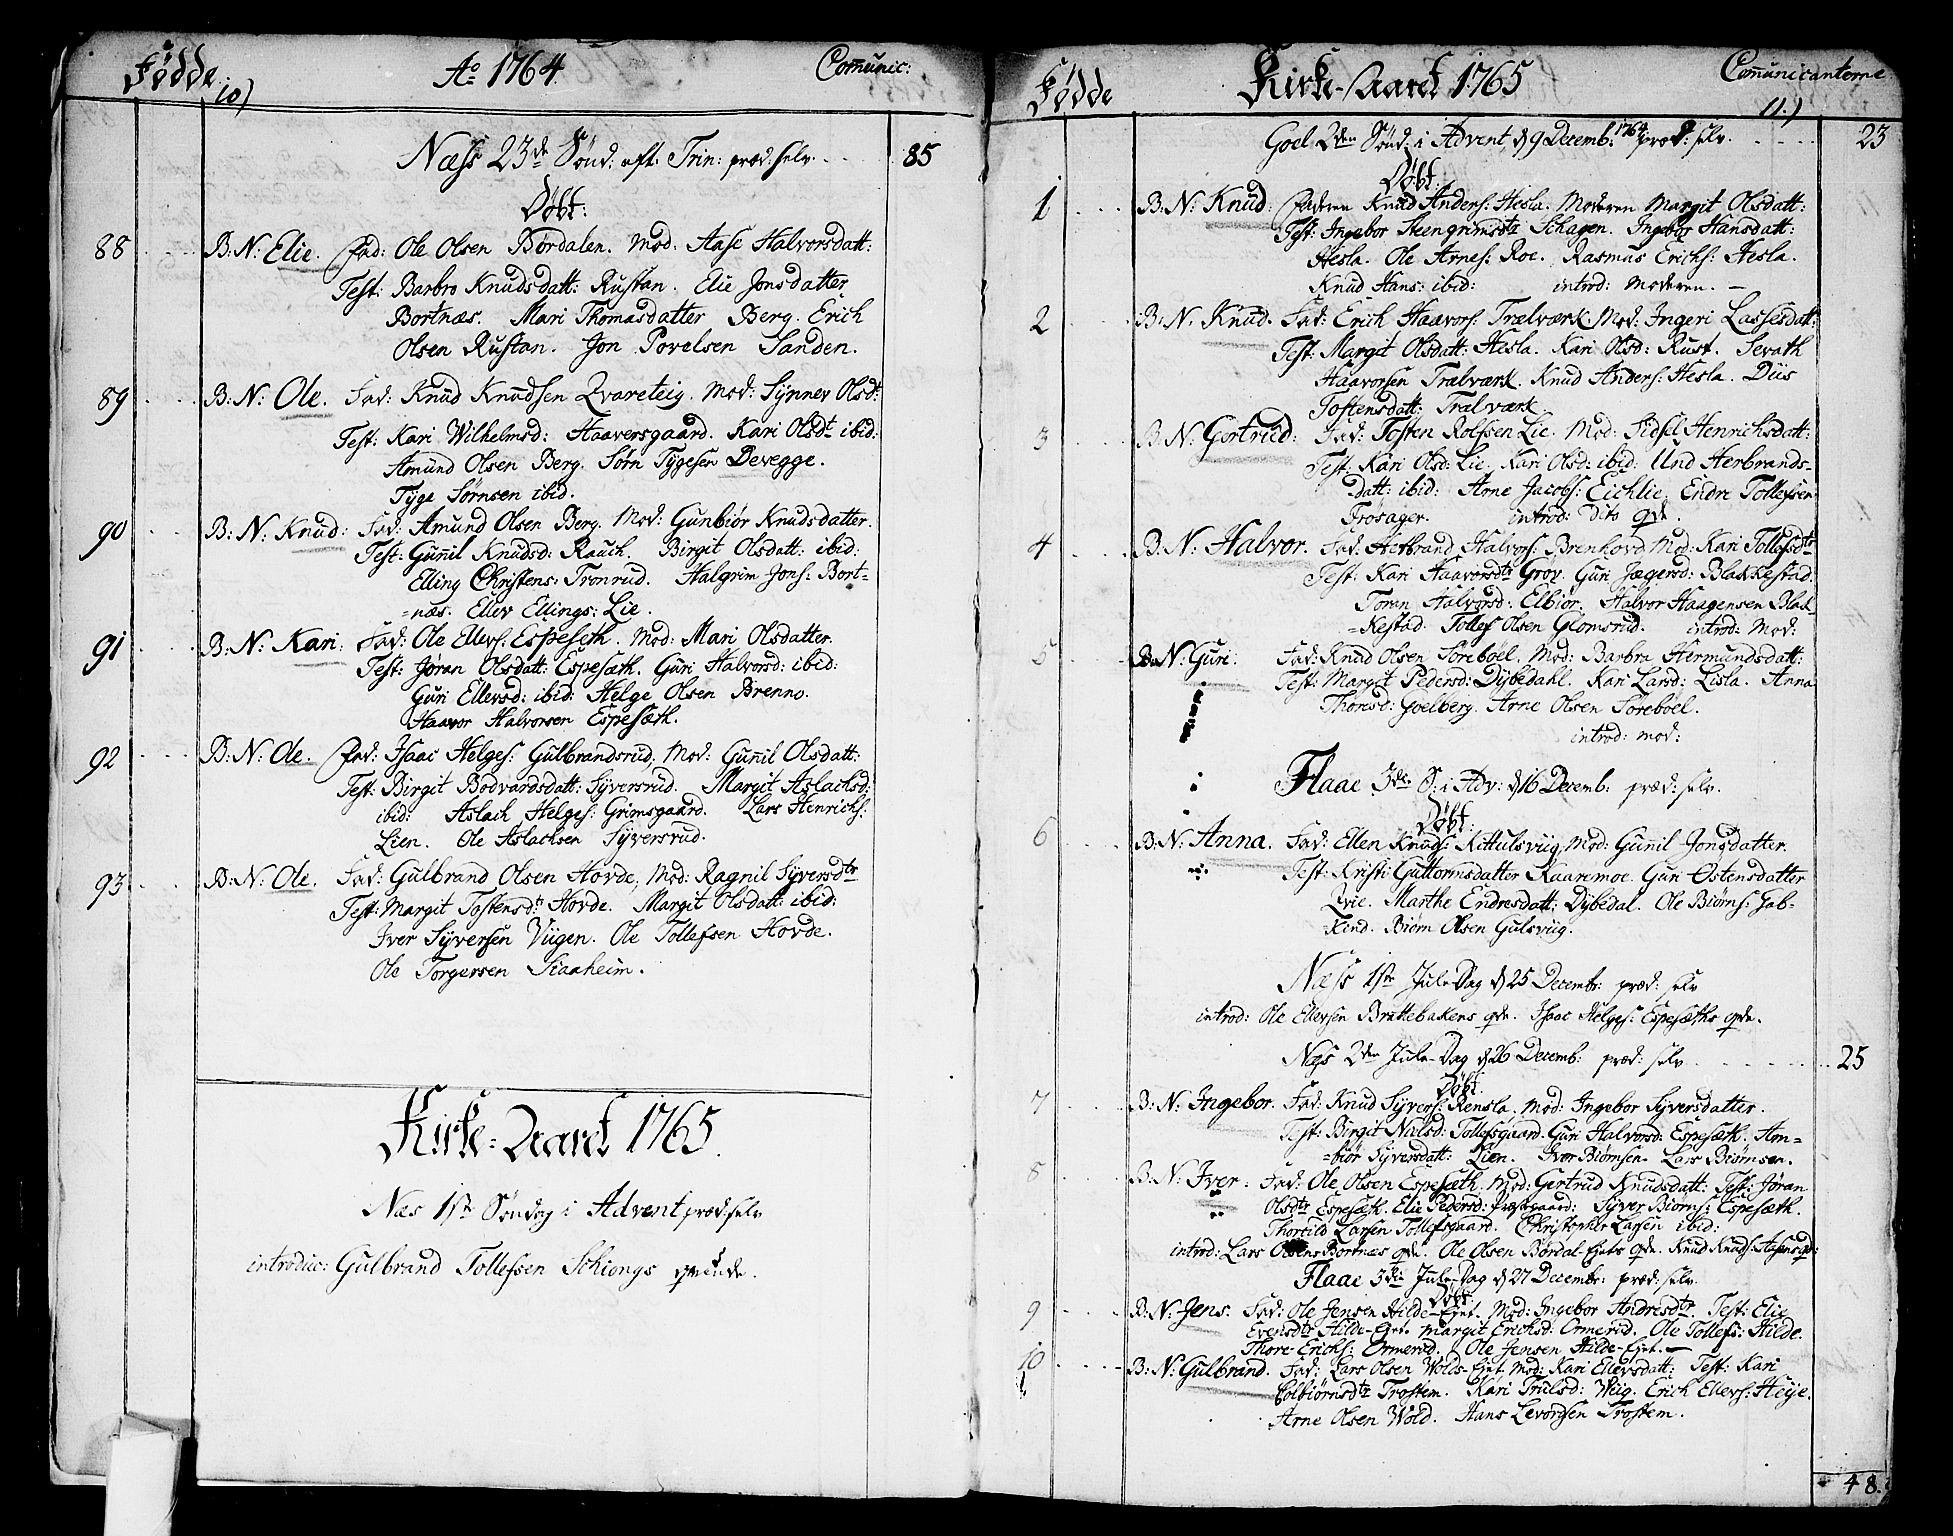 Fødde 10) Ao 1764 Comunic:
Næss 23de Sønd: aft: Trin: præd: selv 85
Døbt:
88 B: N: Elie. Fad: Ole Olsen Børdalen. Mod: Aase Halvorsdatt:
Test: Barbro Knudsdatt: Rustan. Elie Jonsdatter
Bortnæs. Mari Thomasdatter Berg. Erich
Olsen Rustan. Jon Povelsen Sanden.
89 B: N: Ole. Fad: Knud Knudsen Qvareteig. Mod: Synnev Olsdt:
Test: Kari Wilhelmsd: Haaversgaard. Kari Olsdt ibid:
Amund Olsen Berg. Sørn Tygesen Devegge.
Tyge Sørnsen ibid.
90 B: N: Knud: Fad: Amund Olsen Berg. Mod: Gunbiør Knudsdatter.
Test: Guñil Knudsd: Rauch. Birgit Olsdatt: ibid:
Elling Christens: Tronrud. Halgrim Jons: Bort=
=næs. Ellev Ellings: Lie.
91 B: N: Kari: Fad: Ole Ellevs: Espeseth. Mod: Mari Olsdatter.
Test: Jøran Olsdatt: Espesæth. Guri Halvorsd: ibid:
Guri Ellevsd: ibid: Helge Olsen Brenno.
Haavor Halvorsen Espesæth.
92 B: N: Ole. Fad: Isaac Helges: Gulbrandsrud, Mod: Guñil Olsdatt:
Test: Birgit Bodvardsdatt: Syversrud. Margit Aslachsd:
ibid: Aslach Helges: Grimsgaard. Lars Henrichs:
Lien. Ole Aslachsen Syversrud.
93 B: N: Ole. Fad: Gulbrand Olsen Hovde, Mod: Ragnil Syversdtr
Test: Margit Tostensdt: Hovde. Margit Olsdatt: ibid:
Iver Syversen Viigen. Ole Tollefsen Hovde.
Ole Torgersen Siaaheim.
Kirke=Aaret 1765.
Næs 1ste Søndag i Advent præd: selv
introduc: Gulbrand Tollefsen Schiongs qvinde.
Fødde Kirke-Aaret 1765 Comunicanterne 11.)
Goel 2den Sønd: i Advent, d 9 Decemb: 1764 præd: selv 23
Døbt:
1 B: N: Knud: Faderen Knud Anders: Hesla. Moderen Margit Olsdatt:
Test: Ingebor Steengrimsdtr Schagen. Ingebor Hansdatt:
Hesla. Ole Arnes: Roe. Rasmus Erichs: Hesla.
Knud Hans: ibid: introd: Moderen. –
2 B: N: Knud. Fad: Erich Haavors: Trælværk Mod: Ingeri Lassesdatt:
Test: Margit Olsdatt: Hesla. Kari Olsd: Rust. Sevath
Haavorsen Trælværk. Knud Anders: Hesla. Diis
Tostensdatt: Trælværk
3 B: N: Gertrud: Fad: Tosten Rolfsen Lie. Mod: Sidsel Henrichsdatt:
Test: Kari Olsd: Lie. Kari Olsd: ibid: Und Herbrands=
datt: ibid: Arne Jacobs: Eichlie. Endre Tollefsen
Frosager. introd: dito qde.
4 B: N: Halvor. Fad: Herbrand Halvors: Brenhovd Mod: Kari Tollefsdtr
Test: Kari Haavorsdtr Grov. Guri Jægersd: Blakkestad.
Toran Halvorsd: Elbiør. Halvor Haagensen Blak=
=kestad. Tollef Olsen Glomsrud. introd: Mod:
5 B: N: Guri. Fad: Knud Olsen Foreboel. Mod: Barbra Hermundsdatt:
Test: Margit Pedersd: Dybedahl. Kari Larsd: Lisla. Anna
Thonsd: Goelberg. Arne Olsen Foreboel.
introd: mod:
Flaae 3die S: i Adv: d 16 Decemb: præd: selv.
Døbt:
6 B: N: Anna. Fad: Ellen Knuds: Kittulsviig, Mod: Gunil Jonsdatter.
Test: Kristi Guttormsdatter Kaaremoe. Guri Østensdatter
Qvie. Marthe Endresdatt: Dybedal. Ole Biørns: Jab=
=kend. Biørn Olsen Gulsviig.
Næss 1ste Jule-Dag d 25 Decembr: præd: selv
introd: Ole Ellevsen Brattebakens qde. Isaac Helges: Espesæths qde.
Næs 2den Jule-Dag d 26 Decemb: præd: selv 25
Døbt:
7 B: N: Ingebor. Fad: Knud Syvers: Rensla. Mod: Ingebor Syversdatter.
Test: Birgit Nielsd: Tollefsgaard. Guri Halvorsd: Espesæth. Am=
=biør Syversdatt: Lien. Iver Biørnsen. Lars Biørnsen.
8 B: N: Iver. Fad: Ole Olsen Espesæth. Mod: Gertrud Knudsdatt: Test: Jøran
Olsdtr Espesæth. Elie Pedersd: Præstgaard: Syver Biørns: Espesæth.
Thorcild Larsen Tollefsgaard. Christopher Larsen ibid:
introd: Lars Olsens Bortnæs qde. Ole Olsen Børdal-Ejets qde. Knud Knuds: Aasens qd:
Flaae 3die Jule-Dag d 27 Decembr: præd: selv.
Døbt:
9 B: N: Jens. Fad: Ole Jensen Hilde-Ejet. Mod: Ingebor Andresdtr. Test: Elie
Evensdtr Hilde-Ejet. Margit Erichsd: Ormerud. Ole Tollefs: Hilde.
Thore Erichs: Ormerud. Ole Jensen Hilde-Ejet. –
10 B: N: Gulbrand. Fad: Lars Olsen Wolds-Ejet, Mod: Kari Ellevsdatt: Test: Kari
Colbiørnsdtr Trostem. Kari Trulsd: Wiig. Erich Ellevs: Heje.
Arne Olsen Wold. Hans Levordsen Trostem.
48.